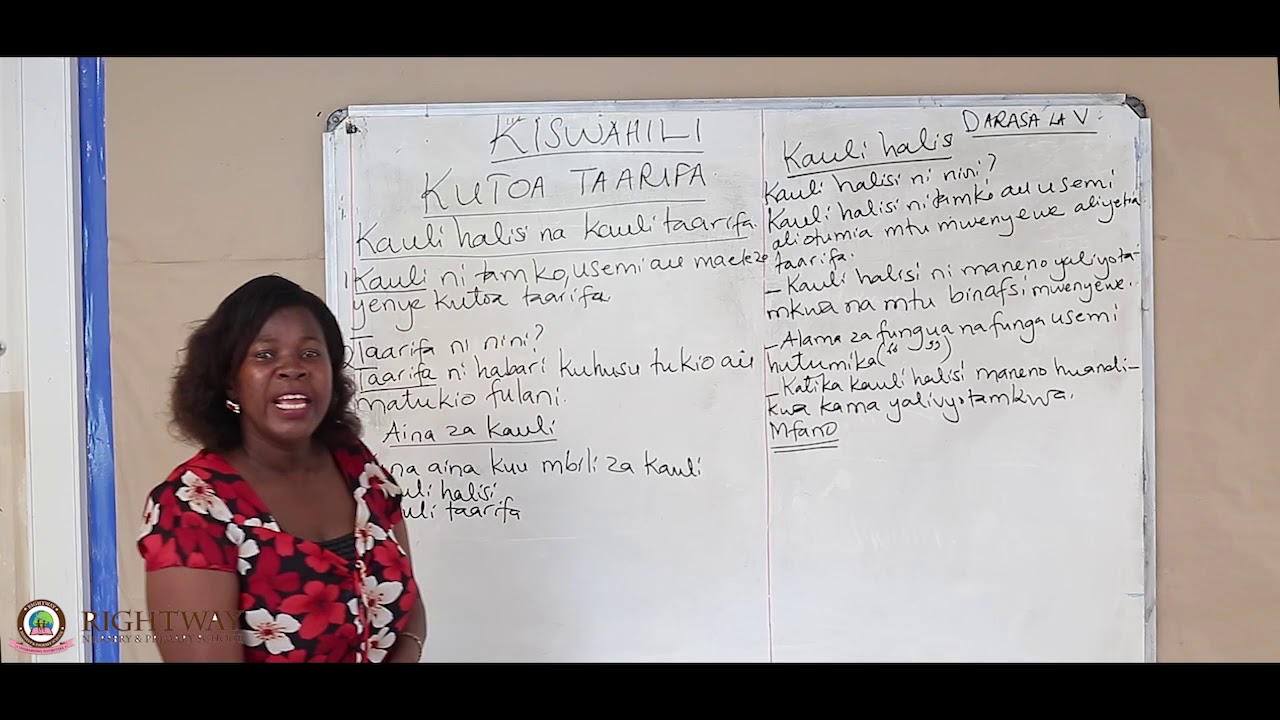 KISWAHILI
KUTOA TAARIFA
Kauli halisi na kauli taarifa.
Kauli ni tamko, usemi au maeleze
yenye kutoa taarifa.
Taarifa ni nini?
Taarifa ni habari kuhusu tukio au
matukio fulani.
Aina za kauli
na aina kuu mbili za kauli
uli halisi
uli taarifa
DARASA LA V
Kauli halisi
Kauli halisi ni nini?
Kauli halisi ni tamko au usemi
aliotumia mtu mwenyewe aliyetoa
taarifa.
- Kauli halisi ni maneno yaliyota-
mkwa na mtu binafsi mwenyewe.
- Alama za fungua na funga usemi
hutumika (" ")
- Katika kauli halisi maneno huandi-
kwa kama yalivyotamkwa.
Mfano
RIGHTWAY
NURSERY & PRIMARY SCHOOL